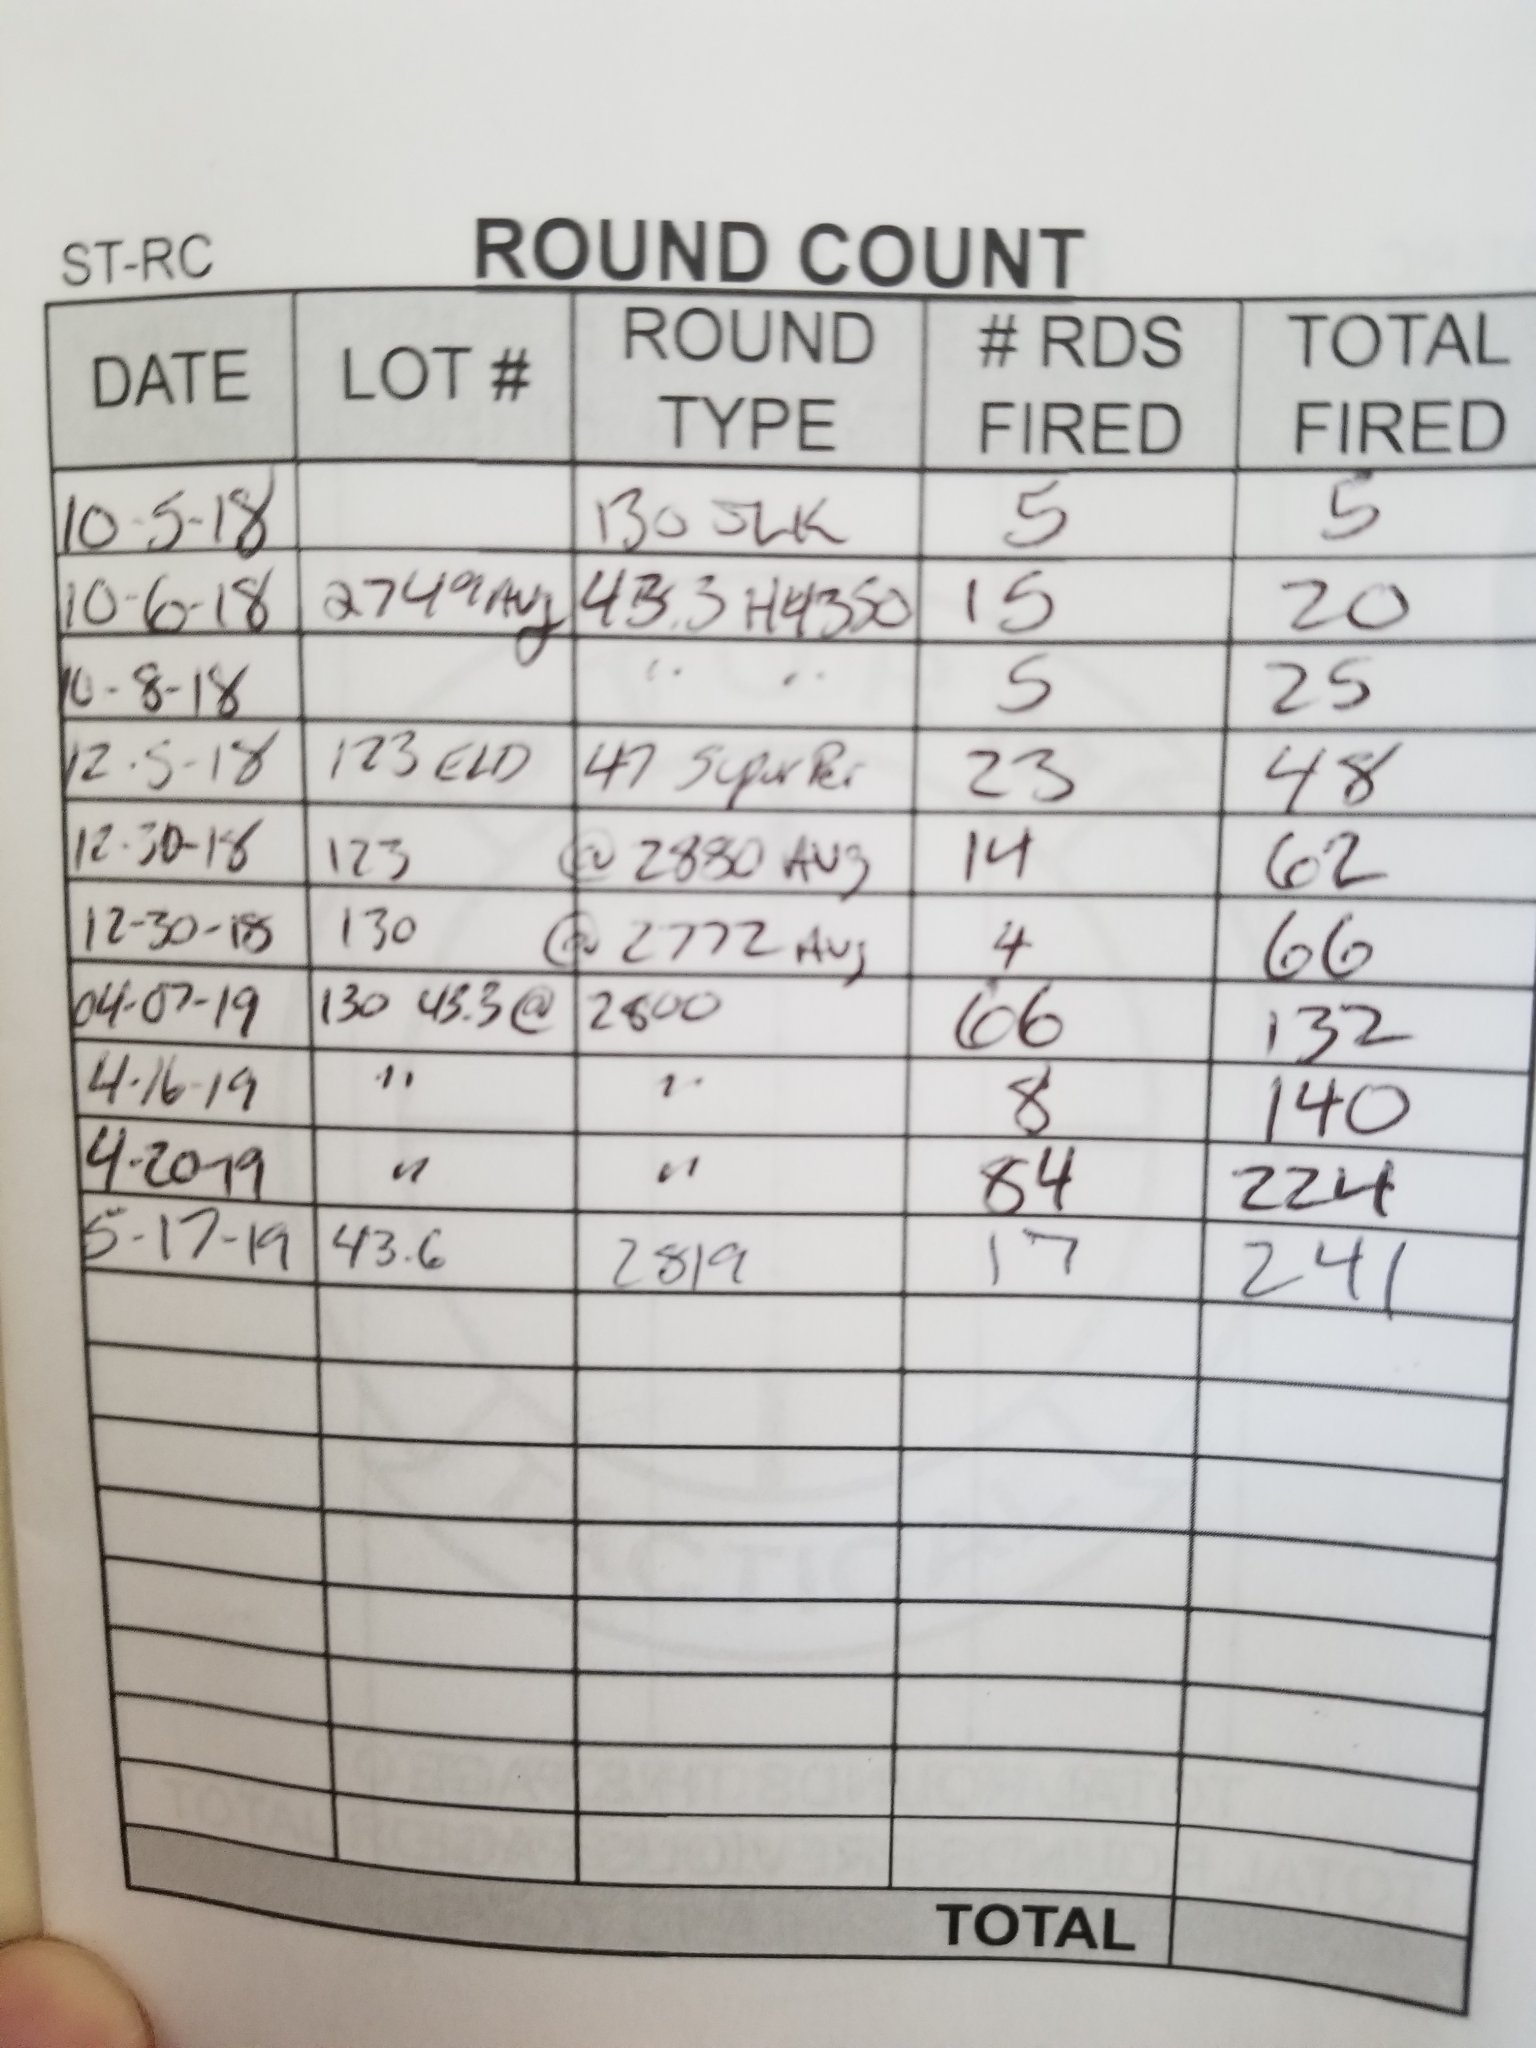 ST-RC ROUND COUNT
DATE LOT # ROUND TYPE # RDS FIRED TOTAL FIRED
10-5-18 130 5 5
10-6-18 2749 Avg 43.3 H4350 15 20
10-8-18 " " 5 25
12-5-18 123 ELD 47 Super Per 23 48
12-30-18 123 @ 2880 Avg 14 62
12-30-18 130 @ 2772 Avg 4 66
04-07-19 130 43.3 @ 2800 66 132
4-16-19 " " 8 140
4-20-19 " " 84 224
5-17-19 43.6 2819 17 241
TOTAL